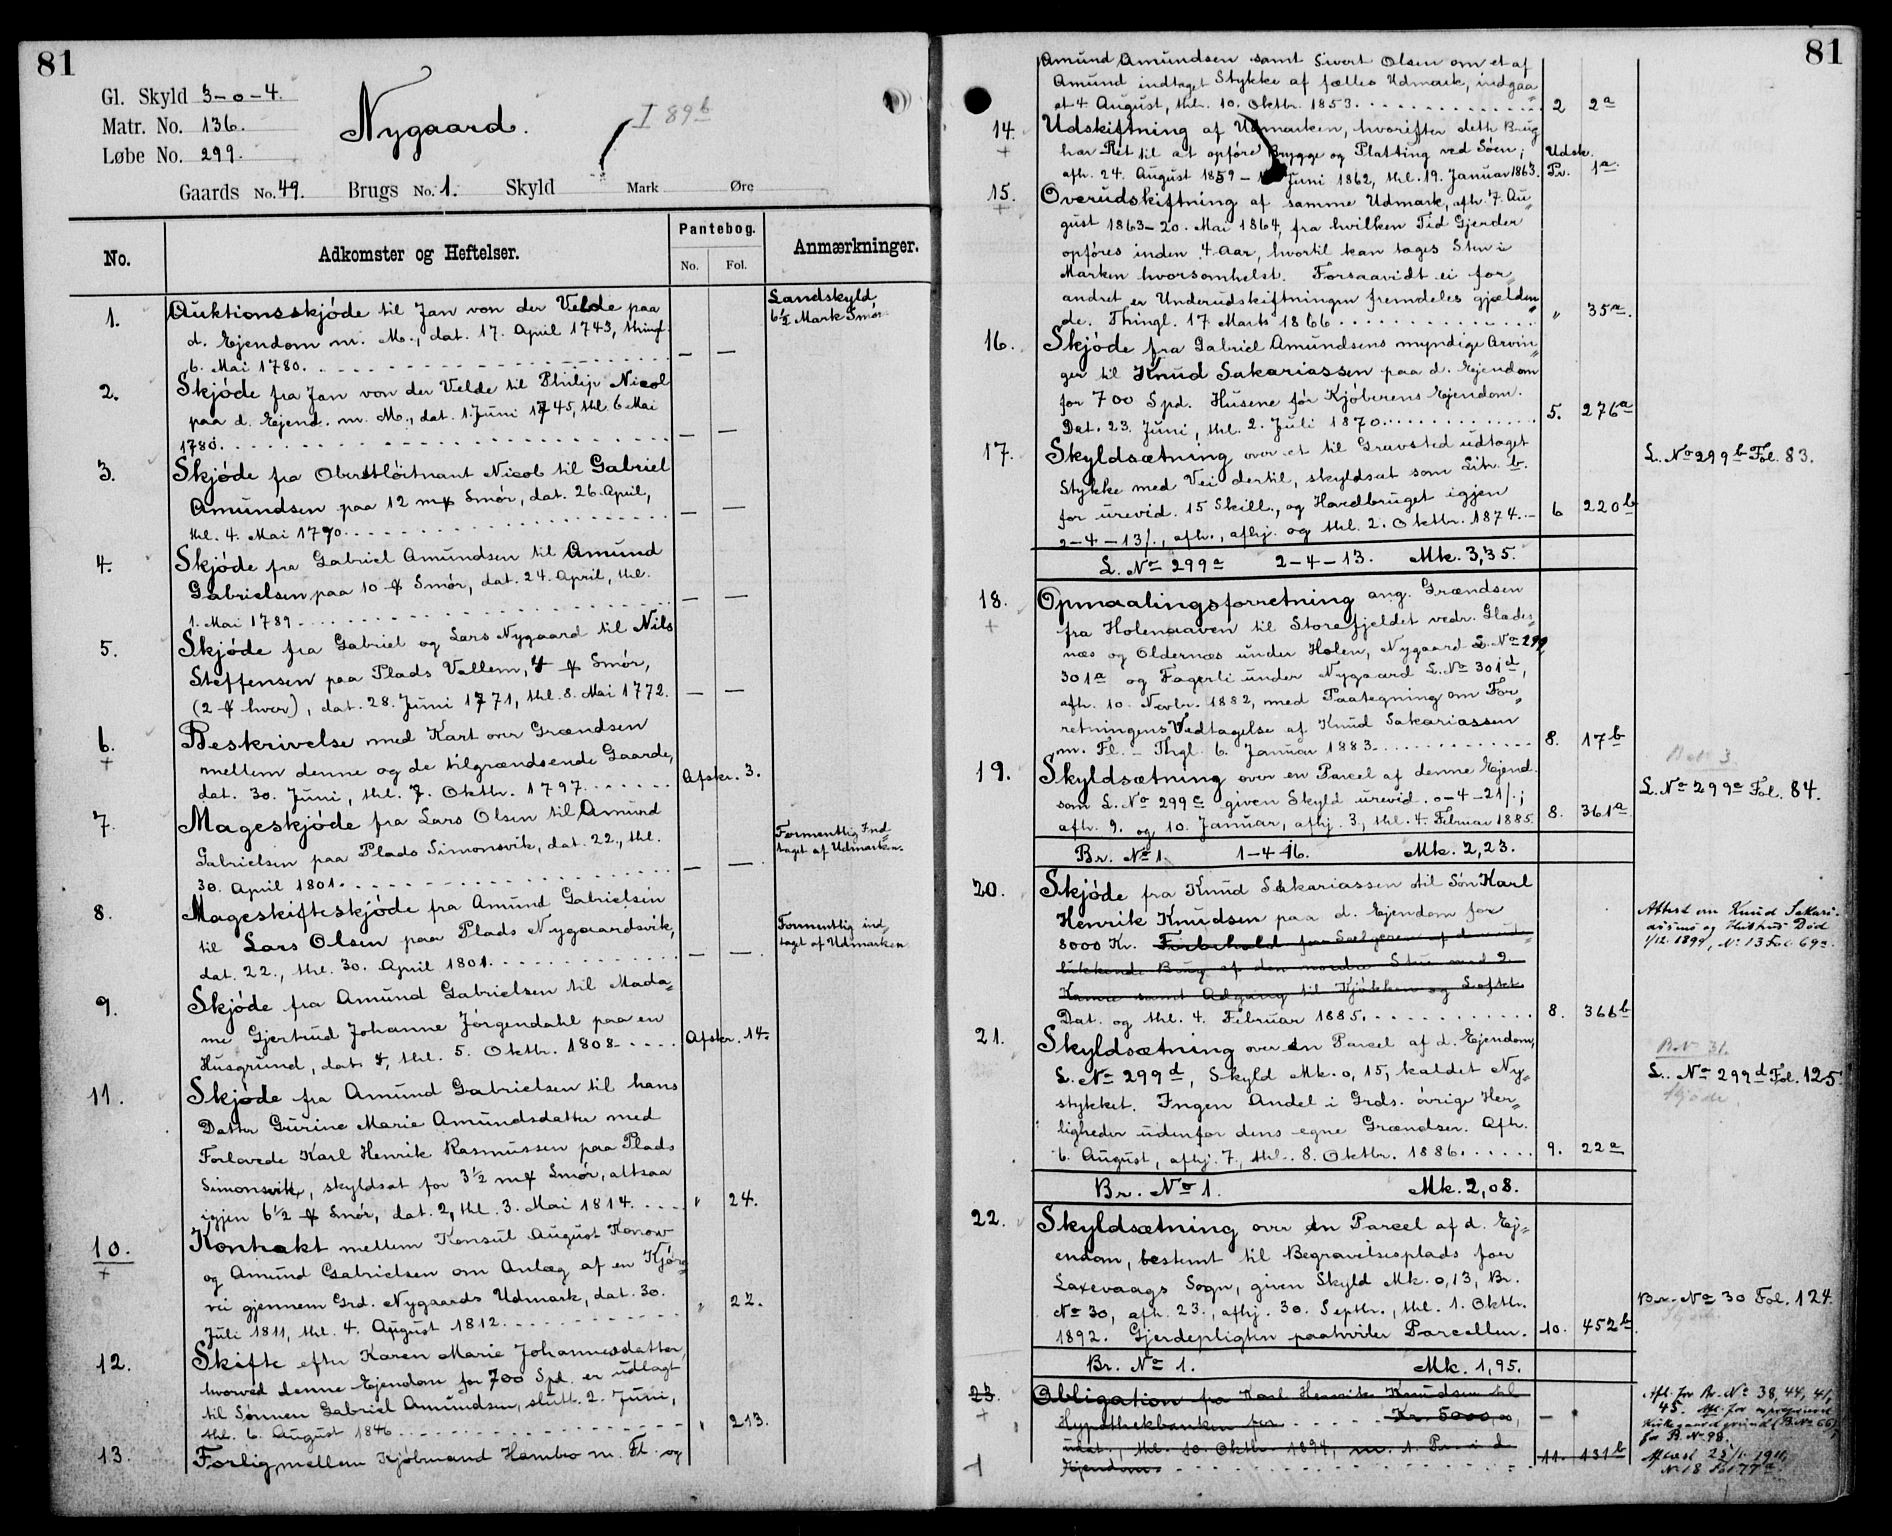 81
Gl. Skyld 3-0-4.
Matr. No. 136.
Løbe No. 299.
Nygaard.
I 89b
Gaards No. 49. Brugs No. 1. Skyld Mark Øre
No.
Adkomster og Heftelser.
Pantebog.
No. Fol.
Anmærkninger.
1. Auktionsskjøde til Jan von der Velde paa
d. Ejendom m. M., dat. 17. April 1743, thingl.
6. Mai 1780. — —
Landskyld
6½ Mark Smør
2. Skjøde fra Jan von der Velde til Philip Nicol
paa d. Ejend. m. M., dat. 1. Juni 1745, thl. 6 Mai
1780. — —
3. Skjøde fra Oberstløitnant Nicol til Gabriel
Amundsen paa 12 m℔ Smør, dat. 26. April,
thl. 4. Mai 1770. — —
4. Skjøde fra Gabriel Amundsen til Amund
Gabrielsen paa 10 ℔ Smør, dat. 24. April, thl.
1. Mai 1789. — —
5. Skjøde fra Gabriel og Lars Nygaard til Nils
Steffensen paa Plads Vellem, 4 ℔ Smør,
(2 ℔ hver), dat. 28. Juni 1771, thl. 8. Mai 1772. — —
6. Beskrivelse med Kart over Grændsen
+ mellem denne og de tilgrændsende Gaarde,
dat. 30. Juni, thl. 7. Oktbr. 1797. Afskr. 3.
7. Mageskjøde fra Lars Olsen til Amund
Gabrielsen paa Plads Simonsvik, dat. 22., thl.
30. April 1801. — —
Formentlig Ind-
taget af Udmarken.
8. Mageskifteskjøde fra Amund Gabrielsen
til Lars Olsen paa Plads Nygaardsvik,
dat. 22., thl. 30. April 1801. — —
Formentlig ind-
taget af Udmarken
9. Skjøde fra Amund Gabrielsen til Mada-
me Gjertrud Johanne Jørgendahl paa en
Husgrund, dat. 4, thl. 5. Oktbr. 1808. Afskr. 14.
11. Skjøde fra Amund Gabrielsen til hans
Datter Gurine Marie Amundsdatter med
Forlovede Karl Henrik Rasmussen paa Plads
Simonsvik, skyldsat for 3½ m℔ Smør, altsaa
igjen 6½ ℔ Smør, dat. 2, thl. 3. Mai 1814. " 24.
10. Kontrakt mellem Konsul August Konow
+ og Amund Gabrielsen om Anlæg af en Kjøre-
vei gjennem Grd. Nygaards Udmark, dat. 30.
Juli 1811, thl. 4. August 1812. " 22.
12. Skifte efter Karen Marie Johannesdatter,
hvorved denne Ejendom for 700 Spd. er udlagt
til Sønnen Gabriel Amundsen, slutt. 2. Juni,
thl. 6. August 1846. " 213.
13. Forlig mellem Kjøbmand Hambro m. Fl. og
81
Amund Amundsen samt Sivert Olsen om et af
Amund indtaget Stykke af fælles Udmark, indgaa-
et 4 August, thl. 10. Oktbr. 1853. 2 2a
14. Udskiftning af Udmarken, hvorefter dette Brug
+ har Ret til at opføre Brygge og Platting ved Søen;
afh. 24. August 1859 - Juni 1862, thl. 19. Januar 1863. Udsk. Pr. 1a
15. Overudskiftning af samme Udmark, afh. 7. Au-
+ gust 1863-20. Mai 1864, fra hvilken Tid Gjerder
opføres inden 4 Aar, hvortil kan tages Sten i
Marken hvorsomhelst. Forsaavidt ei for-
andret er Underudskiftningen fremdeles gjælden-
de. Thingl. 17 Marts 1866 " 35a.
16. Skjøde fra Gabriel Amundsens myndige Arvin-
ger til Knud Sakariassen paa d. Ejendom
for 700 Spd. Husene før Kjøberens Ejendom.
Dat. 23. Juni, thl. 2. Juli 1870. 5. 276a
17. Skyldsætning over et til Gravsted udtaget
Stykke med Vei dertil, skyldsat som Litr. b.
for urevid. 15 Skill., og Hovedbruget igjen
2-4-13/., afh., afhj. og thl. 2. Oktbr. 1874. 6 220b
L. No 299b Fol. 83.
L. No 299a 2-4-13. Mk. 3,35.
18. Opmaalingsforretning ang. Grændsen
+ fra Holenaaven til Storefjeldet vedr. Glades-
næs og Oldernæs under Holen, Nygaard L. No 299
301a og Fagerli under Nygaard L. No 301d,
afh. 10. Novbr. 1882, med Paategning om For-
retningens Vedtagelse af Knud Sakariassen
m. Fl. - Thgl. 6. Januar 1883. 8. 17b
19. Skyldsætning over en Parcel af denne Ejend.
som L. No 299c given Skyld urevid. 0-4-21/.;
afh. 9. og 10. Januar, afhj. 3, thl. 4. Februar 1885. 8. 361a
B. No 3.
L. No 299c Fol. 84.
Br. No 1. 1-4-16. Mk. 2,23.
20. Skjøde fra Knud Sakariassen til Søn Karl
Henrik Knudsen paa d. Ejendom for
8000 Kr. Forbehold for Sælgeren af d. ude-
lukkende Brug af den nordre Stue med 2
Kamre samt Adgang til Kjøkken og Loftet.
Dat. og thl. 4. Februar 1885. 8. 366b
Attest om Knud Sakari-
assens og Hustrus Død
1/12 1894, No 13 Fol. 69a.
21. Skyldsætning over en Parcel af d. Ejendom,
L. No 299d, Skyld Mk. 0,15, kaldet Ny-
stykket. Ingen Andel i Grds. øvrige Her-
ligheder udenfor dens egne Grændser. Afh.
6. August, afhj. 7., thl. 8. Oktbr. 1886. 9. 22a
B. No 31.
L. No 299d Fol. 125
Skjøde.
Br. No 1. Mk. 2,08.
22. Skyldsætning over en Parcel af d. Ej-
endom, bestemt til Begravelsesplads for
Laxevaags Sogn, given Skyld Mk. 0,13, Br.
No 30, afh. 23., afhj. 30. Septbr., thl. 1. Oktbr.
1892. Gjerdepligten paahviler Parcellen. 10. 452b.
Br. No 30 Fol. 124.
Br. No 1. Mk. 1,95.
23. Obligation fra Karl Henrik Knudsen til
+ Hypothekbanken for Kr. 5000,00,
udat., thl. 10. Oktbr. 1894, m. 1. Pr. i d.
Ejendom. 11. 131b
Afl. for Br. No 38, 44, 41,
45. Afl. for
Kirkegaard grund (B. No 66)
for B. No 98.
No 18 fol 77a.